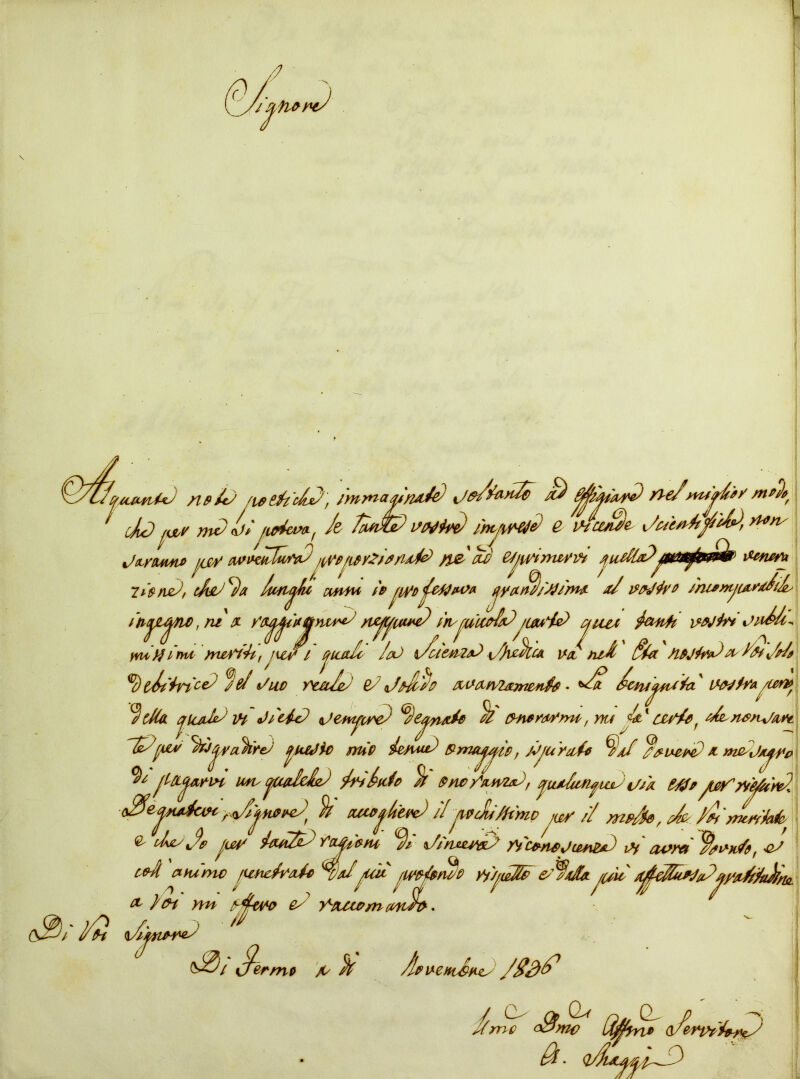 Signore
Alquante note poetiche, immaginate soltanto ad effigiare nel miglior modo,
che per me si poteva, le tante vostre imprese e vicende scientifiche, non
saranno per avventura proporzionate nè ad esprimervi quella venera
zione, che da lunghi anni io professava grandissima al vostro incomparabile
ingegno, nè a raggiugnere neppure in piccola parte quei tanti vostri subli-
missimi meriti, pei quali la scienza Medica va nell' Età nostra a Voi solo
Debitrice del suo reale e solido avanzamento. La benignità vostra però,
della quale vi siete sempre degnato di onorarmi, mi fa certo, che non sarà
per disgradire questo mio tenue omaggio, ispirato dal dovere a me sagro
di pagarvi un qualche tributo di onoranza, qualunque sia esso per riescire.
Degnatevi, Signore, di accogliere il pochissimo per il molto, che Voi meritate
e che io per tante ragioni di sincera riconoscenza vi avrei dovuto, e
coll' animo penetrato dal più profondo rispetto e dalla più affettuosa gratitudine
a Voi mi offero e raccomando.
Di Voi Signore
Di Fermo a dì Novembre 1836
Umo Dmo Affmo Servitore
A. Maggi